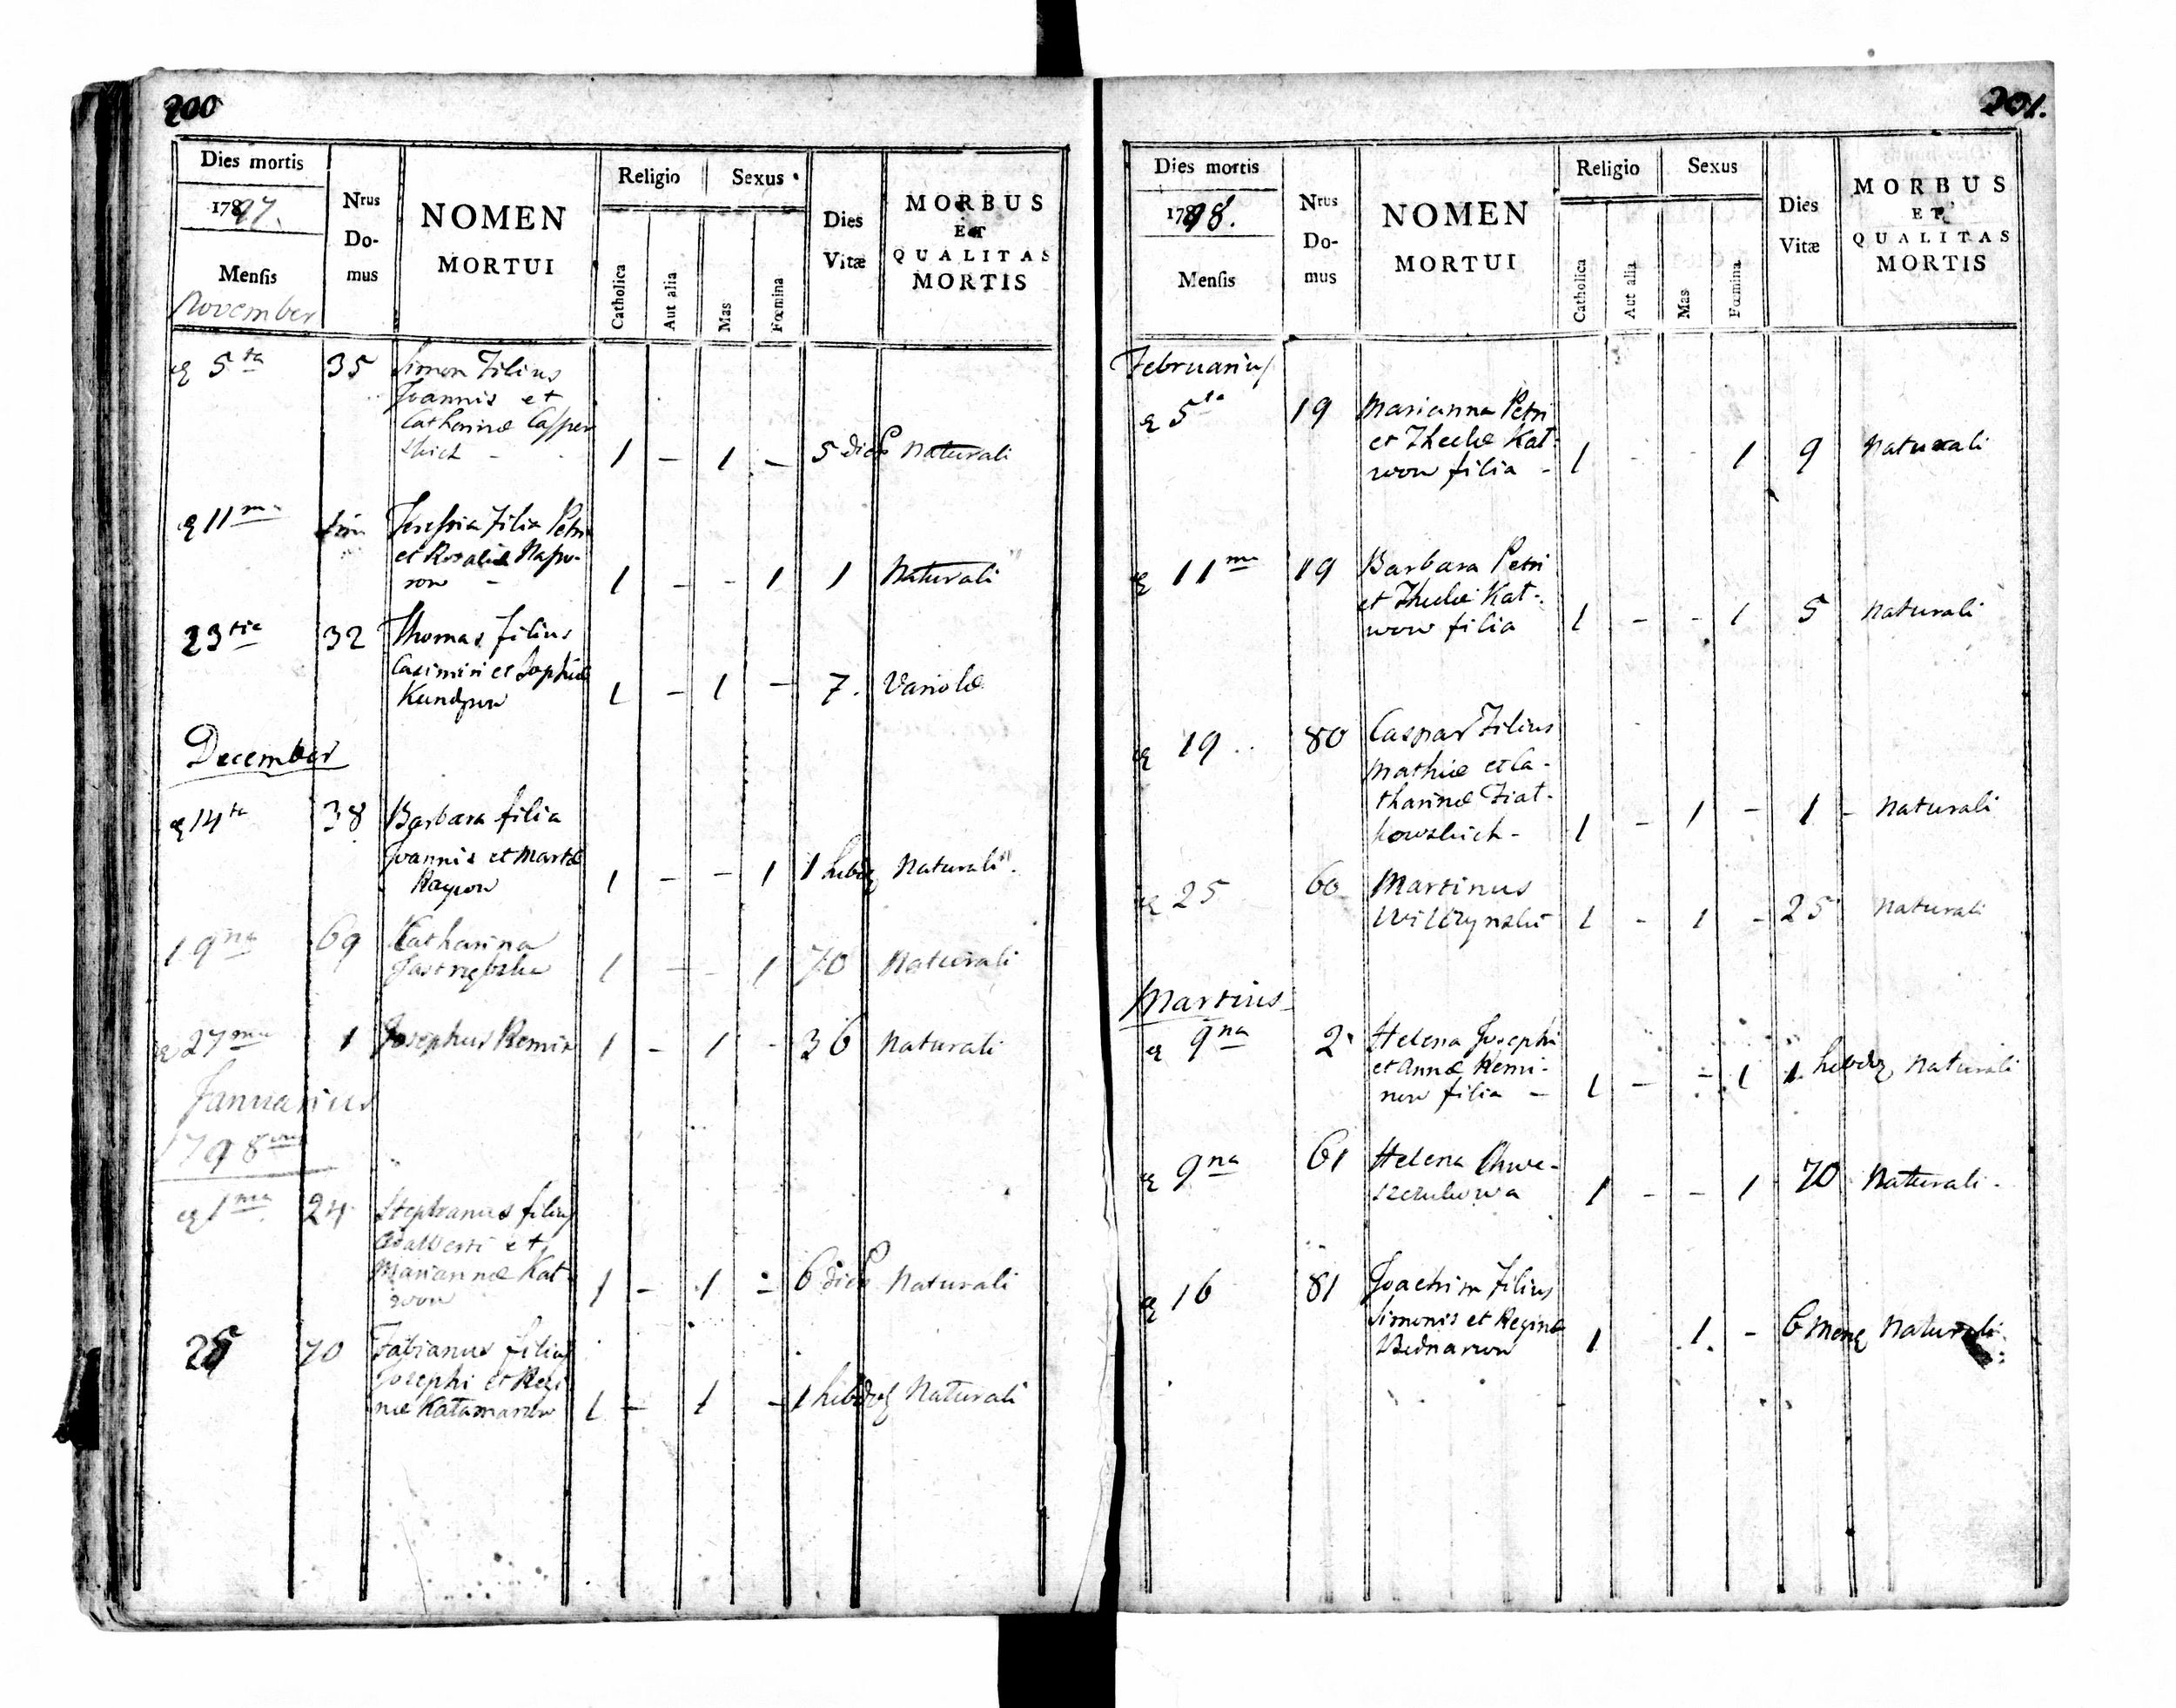 200
Dies mortis
1797.
Mensis
November
Nrus Do-
mus
NOMEN
MORTUI
Religio
Catholica
Aut alia
Sexus
Mas
Fœmina
Dies
Vitæ
MORBUS
ET
QUALITAS
MORTIS
5ta 35 Simon Filius
Joannis et
Catharinæ Casper
skich - 1 - 1 - 5 dies Naturali
11ma Filia Petri
et Rosaliæ Napo-
ron - 1 - - 1 1 Naturali
23tia 32 Thomas filius
Casimiri et Sophiæ
1 - 1 - 7. Variolæ
December
14ta 38 Barbara filia
Joannis et Martæ
1 - - 1 1 hebd Naturali
19na 69 Catharina
1 - - 1 70 Naturali
27ma 1 Josephus Remin 1 - 1 - 36 Naturali
Januarius
1798
1ma 24 Stephanus filius
Adalberti et
Mariannæ Kat-
1 - 1 - 6 dies Naturali
25 70 Fabianus filius
Josephi et Regi
næ 1 - 1 - 1 hebd Naturali
201.
Dies mortis
1798.
Mensis
Nrus
Do-
mus
NOMEN
MORTUI
Religio
Catholica
Aut alia
Sexus
Mas
Fœmina
Dies
Vitæ
MORBUS
ET
QUALITAS
MORTIS
Februarius
5ta 19 Marianna Petri
et Theclæ Kat-
filia - 1 - - 1 9 Naturali
11ma 19 Barbara Petri
et Theclæ Kat-
filia 1 - - 1 5 Naturali
19 80 Caspar Filius
Mathiæ et Ca-
tharinæ Fiat-
kowskich - 1 - 1 - 1 - Naturali
25 60 Martinus
Wilczynski 1 - 1 - 25 Naturali
Martius
9na 2 Helena Josephi
et Annæ Remi-
now filia - 1 - - 1 1 hebd Naturali
9na 61 Helena
1 - - 1 70 Naturali -
16 81 Joachim Filius
Simonis et Reginæ
Bednarzow 1 1. - 6 mens Naturali